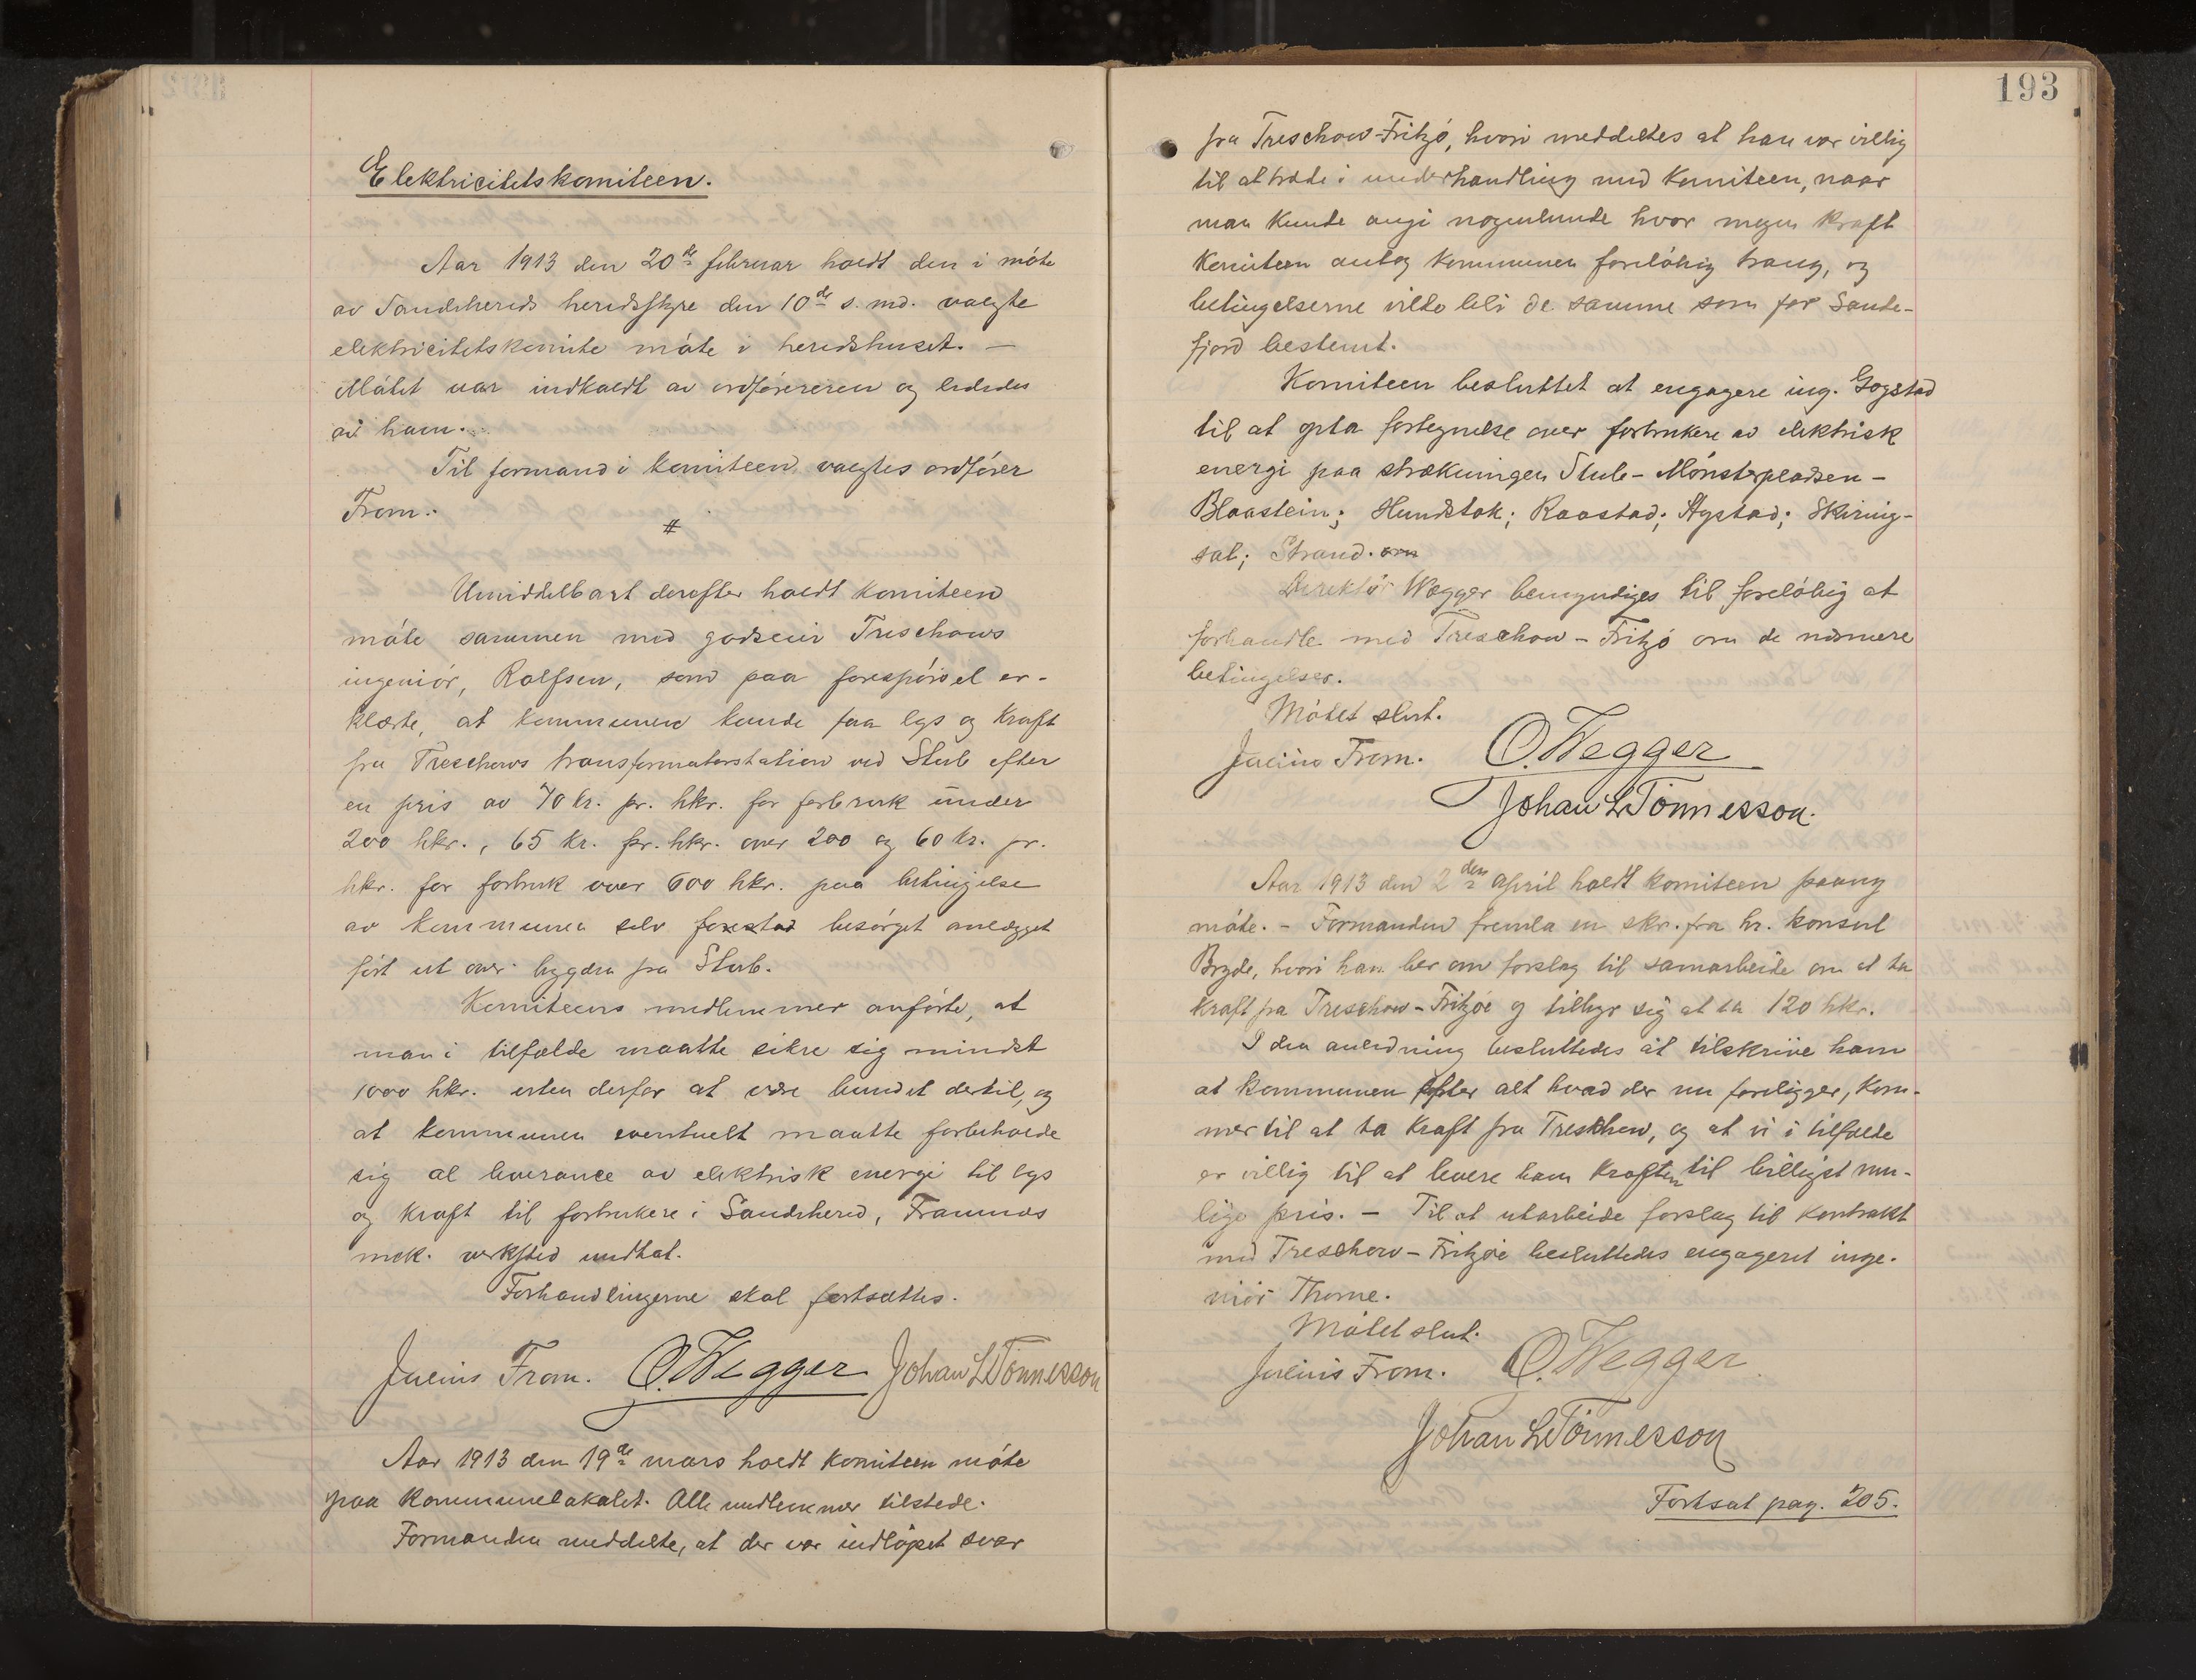 Elektricitetskomiteen.
Aar 1913 den 20de februar holdt den i møte
av Sandeherreds herredsstyre den 10de s. md. valgte
elektricitetskomite møte i herredshuset. —
Møtet var indkaldt av ordføreren og lededes
av ham.
Til formand i komiteen valgtes ordfører
From.
#
Umiddelbart derefter holdt komiteen
møte sammen med godseier Treschows
ingeniør, Rolfsen, som paa forespørsel er-
klærte, at kommunen kunde faa lys og kraft
fra Treschows transformatorstation ved Stub efter
en pris av 70 kr. pr. hkr. for forbruk under
200 hkr., 65 kr. pr. hkr. over 200 og 60 kr. pr.
hkr. for forbruk over 600 hkr. paa betingelse
av kommunen selv besørget anlægget
ført ut over bygden fra Stub.
Komiteens medlemmer anførte, at
man i tilfælde maatte sikre sig mindst
1000 hkr. uten derfor at være bundet dertil, og
at kommunen eventuelt maatte forbeholde
sig al leverance av elektrisk energi til lys
og kraft til forbrukere i Sandeherred, Framnæs
mek. verksted undtat.
Forhandlingerne skal fortsættes.
Julius From. O. Wegger Johan L Tönnesson
Aar 1913 den 19de mars holdt komiteen møte
paa kommunelokalet. Alle medlemmer tilstede.
Formanden meddelte, at der var indløpet svar
193
fra Treschow-Fritzø, hvori meddeltes at han var villig
til at træde i underhandling med komiteen, naar
man kunde angi nogenlunde hvor megen kraft
komiteen antog kommunen foreløbig trang, og
betingelserne vilde bli de samme som for Sande-
fjord bestemt.
Komiteen besluttet at engagere ing. Gogstad
til at opta fortegnelse over forbrukere av elektrisk
energi paa strækningen Stub - Mønsterpladsen -
Blaastein; Hundstok; Raastad; Nystad; Skiring-
sal; Strand. om
Direktør Wegger bemyndiges til foreløbig at
forhandle med Treschow - Fritzø om de nærmere
betingelser.
Møtet slut.
Julius From. O. Wegger
Johan L Tönnesson.
Aar 1913 den 2den April holdt komiteen paany
møte. - Formanden fremla en skr. fra hr. konsul
Bryde, hvori han ber om forslag til samarbeide om at ta
kraft fra Treschow - Fritzøe og tilbyr sig at ta 120 hkr.
I den anledning besluttedes at tilskrive ham
at kommunen efter alt hvad der nu foreligger, kom-
mer til at ta kraft fra Treschow, og at vi i tilfælde
er villig til at levere ham kraften til billigst mu-
lige pris. - Til at utarbeide forslag til kontrakt
med Treschow - Fritzøe besluttedes engageret inge-
niør Thorne.
Møtet slut.
Julius From. O. Wegger
Johan L Tönnesson
Fortsat pag. 205.